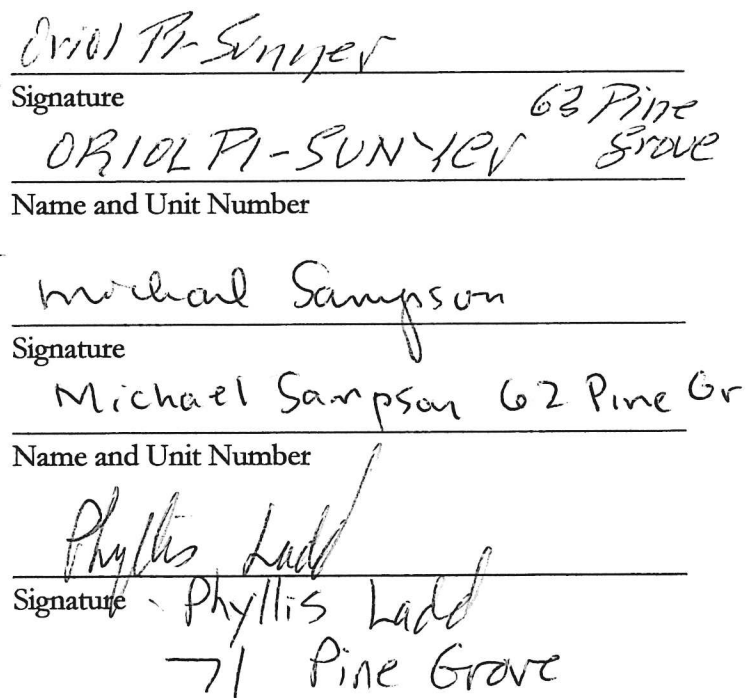 Oriol Pi-Sunyer
Signature
63 Pine
ORIOL PI-SUNYER Grove
Name and Unit Number
Michael Sampson
Signature
Michael Sampson 62 Pine Gr
Name and Unit Number
Phyllis Ladd
Signature Phyllis Ladd
71 Pine Grove